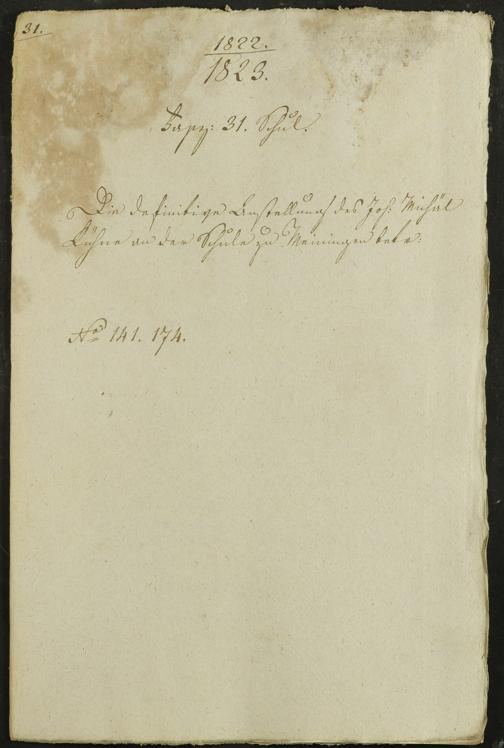 31.
1822.
1823.
Fasz: 31. Schul.
Die definitive Anstellung des Joh: Michäl
Kühne an der Schule zu Meiningen betr:
No 141. 174.